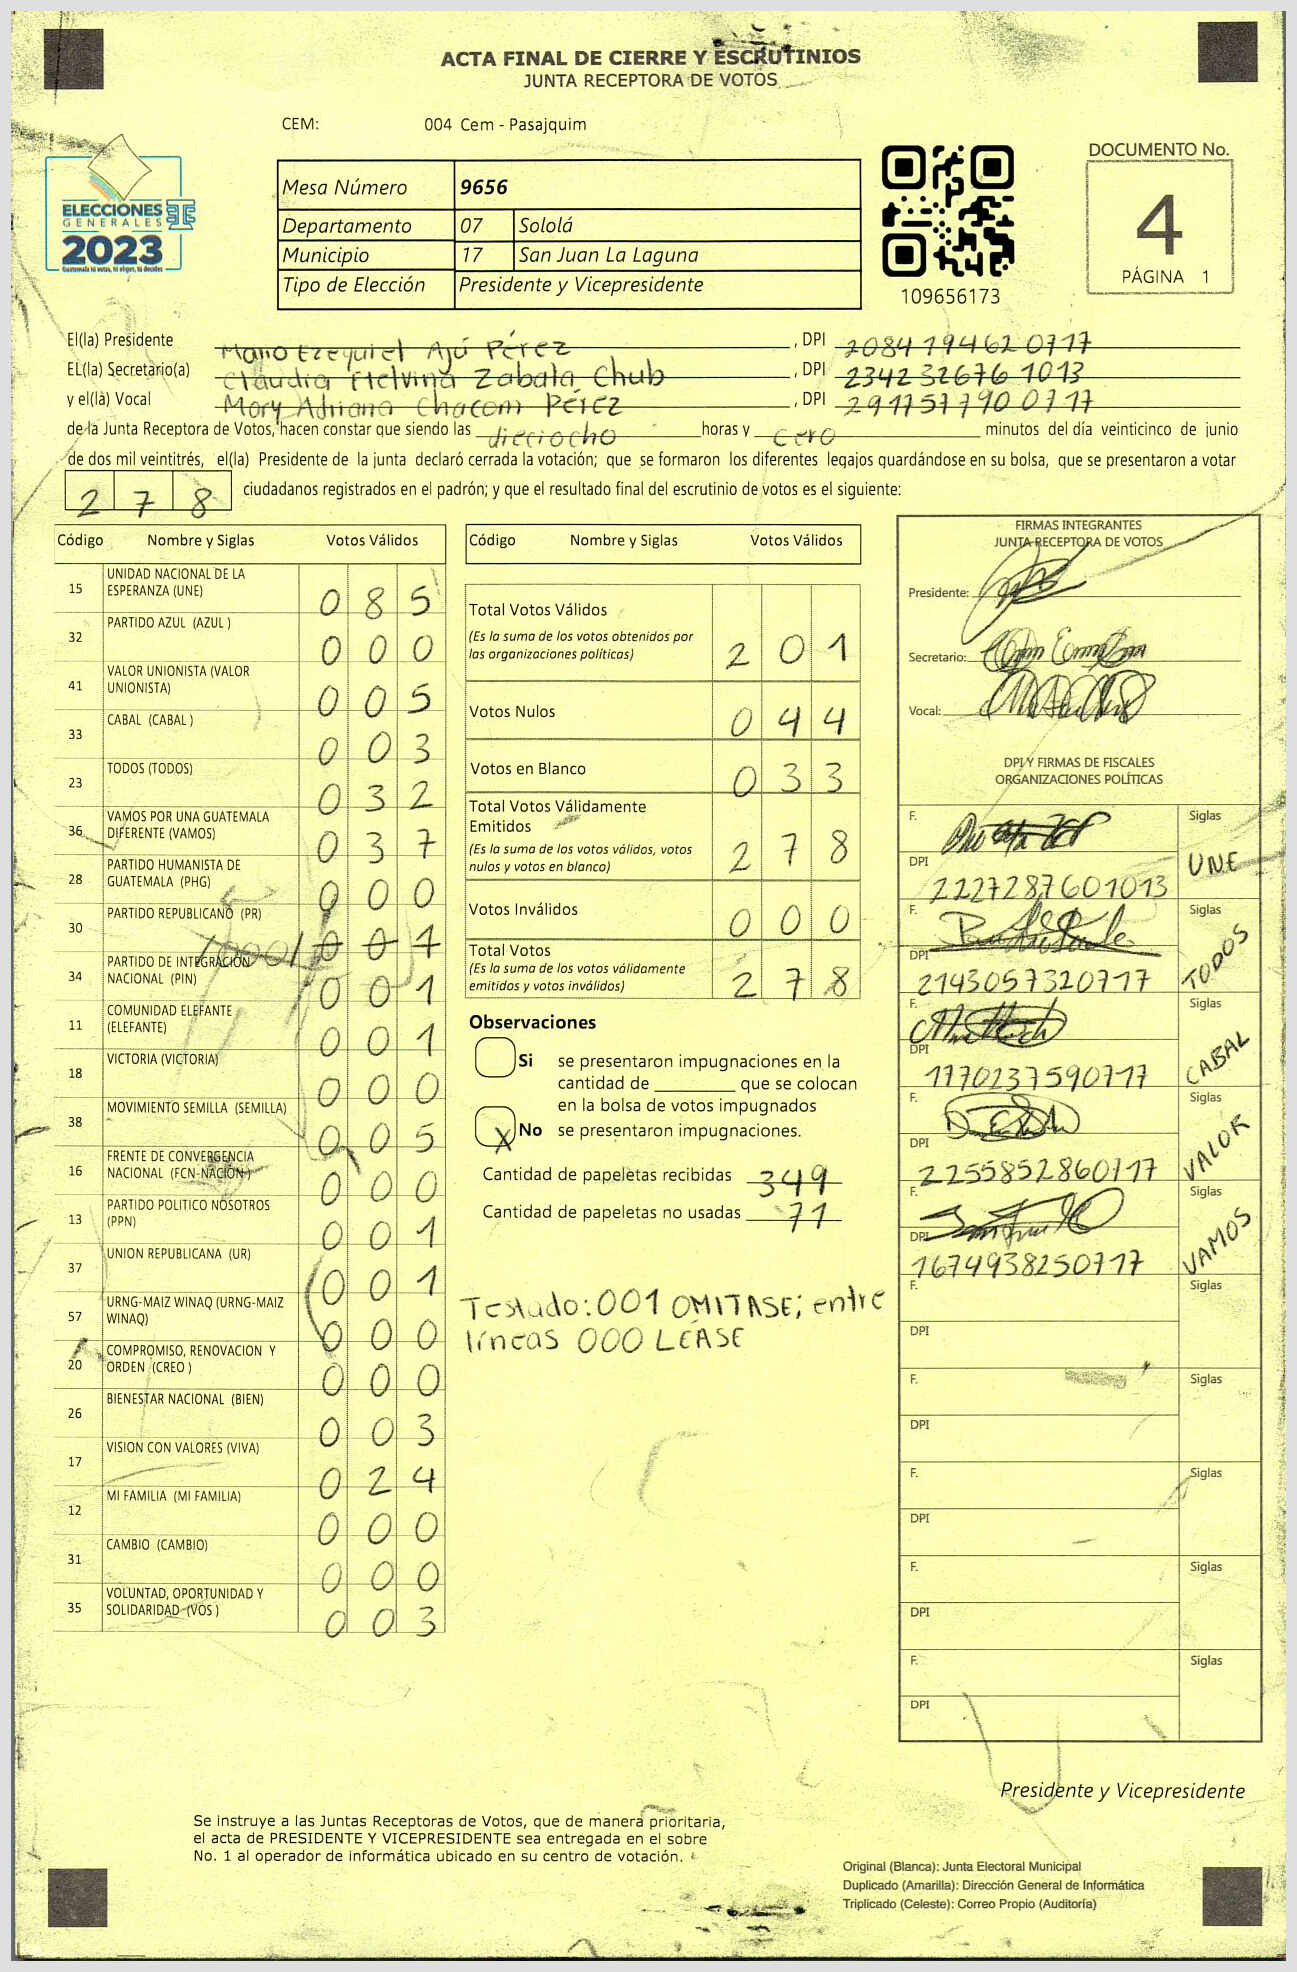 ACTA FINAL DE CIERRE Y ESCRUTINIOS
JUNTA RECEPTORA DE VOTOS
CEM: 004 Cem - Pasajquim
ELECCIONES
GENERALES
2023
Guatemala tú votas, tú eliges, tú decides
Mesa Número 9656
Departamento 07 Sololá
Municipio 17 San Juan La Laguna
Tipo de Elección Presidente y Vicepresidente
109656173
DOCUMENTO No.
4
PÁGINA 1
El(la) Presidente Mario Ezequiel Ajú Pérez , DPI 2084194620717
EL(la) Secretario(a) Claudia Etelvina Zabala Chub , DPI 2342326761013
y el(là) Vocal Mary Adriana Chacom Pérez , DPI 2917577900717
de la Junta Receptora de Votos, hacen constar que siendo las dieciocho horas y cero minutos del día veinticinco de junio
de dos mil veintitrés, el(la) Presidente de la junta declaró cerrada la votación; que se formaron los diferentes legajos guardándose en su bolsa, que se presentaron a votar
278 ciudadanos registrados en el padrón; y que el resultado final del escrutinio de votos es el siguiente:
Código Nombre y Siglas Votos Válidos
15 UNIDAD NACIONAL DE LA ESPERANZA (UNE) 085
32 PARTIDO AZUL (AZUL ) 000
41 VALOR UNIONISTA (VALOR UNIONISTA) 005
33 CABAL (CABAL ) 003
23 TODOS (TODOS) 032
36 VAMOS POR UNA GUATEMALA DIFERENTE (VAMOS) 037
28 PARTIDO HUMANISTA DE GUATEMALA (PHG) 000
30 PARTIDO REPUBLICANO (PR) /000/ 001
34 PARTIDO DE INTEGRACION NACIONAL (PIN) 001
11 COMUNIDAD ELEFANTE (ELEFANTE) 001
18 VICTORIA (VICTORIA) 000
38 MOVIMIENTO SEMILLA (SEMILLA) 005
16 FRENTE DE CONVERGENCIA NACIONAL (FCN-NACION) 000
13 PARTIDO POLITICO NOSOTROS (PPN) 001
37 UNION REPUBLICANA (UR) 001
57 URNG-MAIZ WINAQ (URNG-MAIZ WINAQ) 000
20 COMPROMISO, RENOVACION Y ORDEN (CREO ) 000
26 BIENESTAR NACIONAL (BIEN) 003
17 VISION CON VALORES (VIVA) 024
12 MI FAMILIA (MI FAMILIA) 000
31 CAMBIO (CAMBIO) 000
35 VOLUNTAD, OPORTUNIDAD Y SOLIDARIDAD (VOS ) 003
Código Nombre y Siglas Votos Válidos
Total Votos Válidos
(Es la suma de los votos obtenidos por
las organizaciones políticas) 201
Votos Nulos 044
Votos en Blanco 033
Total Votos Válidamente
Emitidos
(Es la suma de los votos válidos, votos
nulos y votos en blanco) 278
Votos Inválidos 000
Total Votos
(Es la suma de los votos válidamente
emitidos y votos inválidos) 278
Observaciones
Si se presentaron impugnaciones en la
cantidad de ________ que se colocan
en la bolsa de votos impugnados
X No se presentaron impugnaciones.
Cantidad de papeletas recibidas 349
Cantidad de papeletas no usadas 71
Testado: 001 OMITASE; entre
líneas 000 LEASE
FIRMAS INTEGRANTES
JUNTA RECEPTORA DE VOTOS
Presidente:
Secretario:
Vocal:
DPI Y FIRMAS DE FISCALES
ORGANIZACIONES POLÍTICAS
F. Siglas UNE
DPI 2227287601013
F. Siglas TODOS
DPI 2143057320717
F. Siglas CABAL
DPI 1770237590717
F. Siglas VALOR
DPI 2255852860717
F. Siglas VAMOS
DPI 1674938250717
F. Siglas
DPI
F. Siglas
DPI
F. Siglas
DPI
F. Siglas
DPI
F. Siglas
DPI
Presidente y Vicepresidente
Se instruye a las Juntas Receptoras de Votos, que de manera prioritaria,
el acta de PRESIDENTE Y VICEPRESIDENTE sea entregada en el sobre
No. 1 al operador de informática ubicado en su centro de votación.
Original (Blanca): Junta Electoral Municipal
Duplicado (Amarilla): Dirección General de Informática
Triplicado (Celeste): Correo Propio (Auditoría)